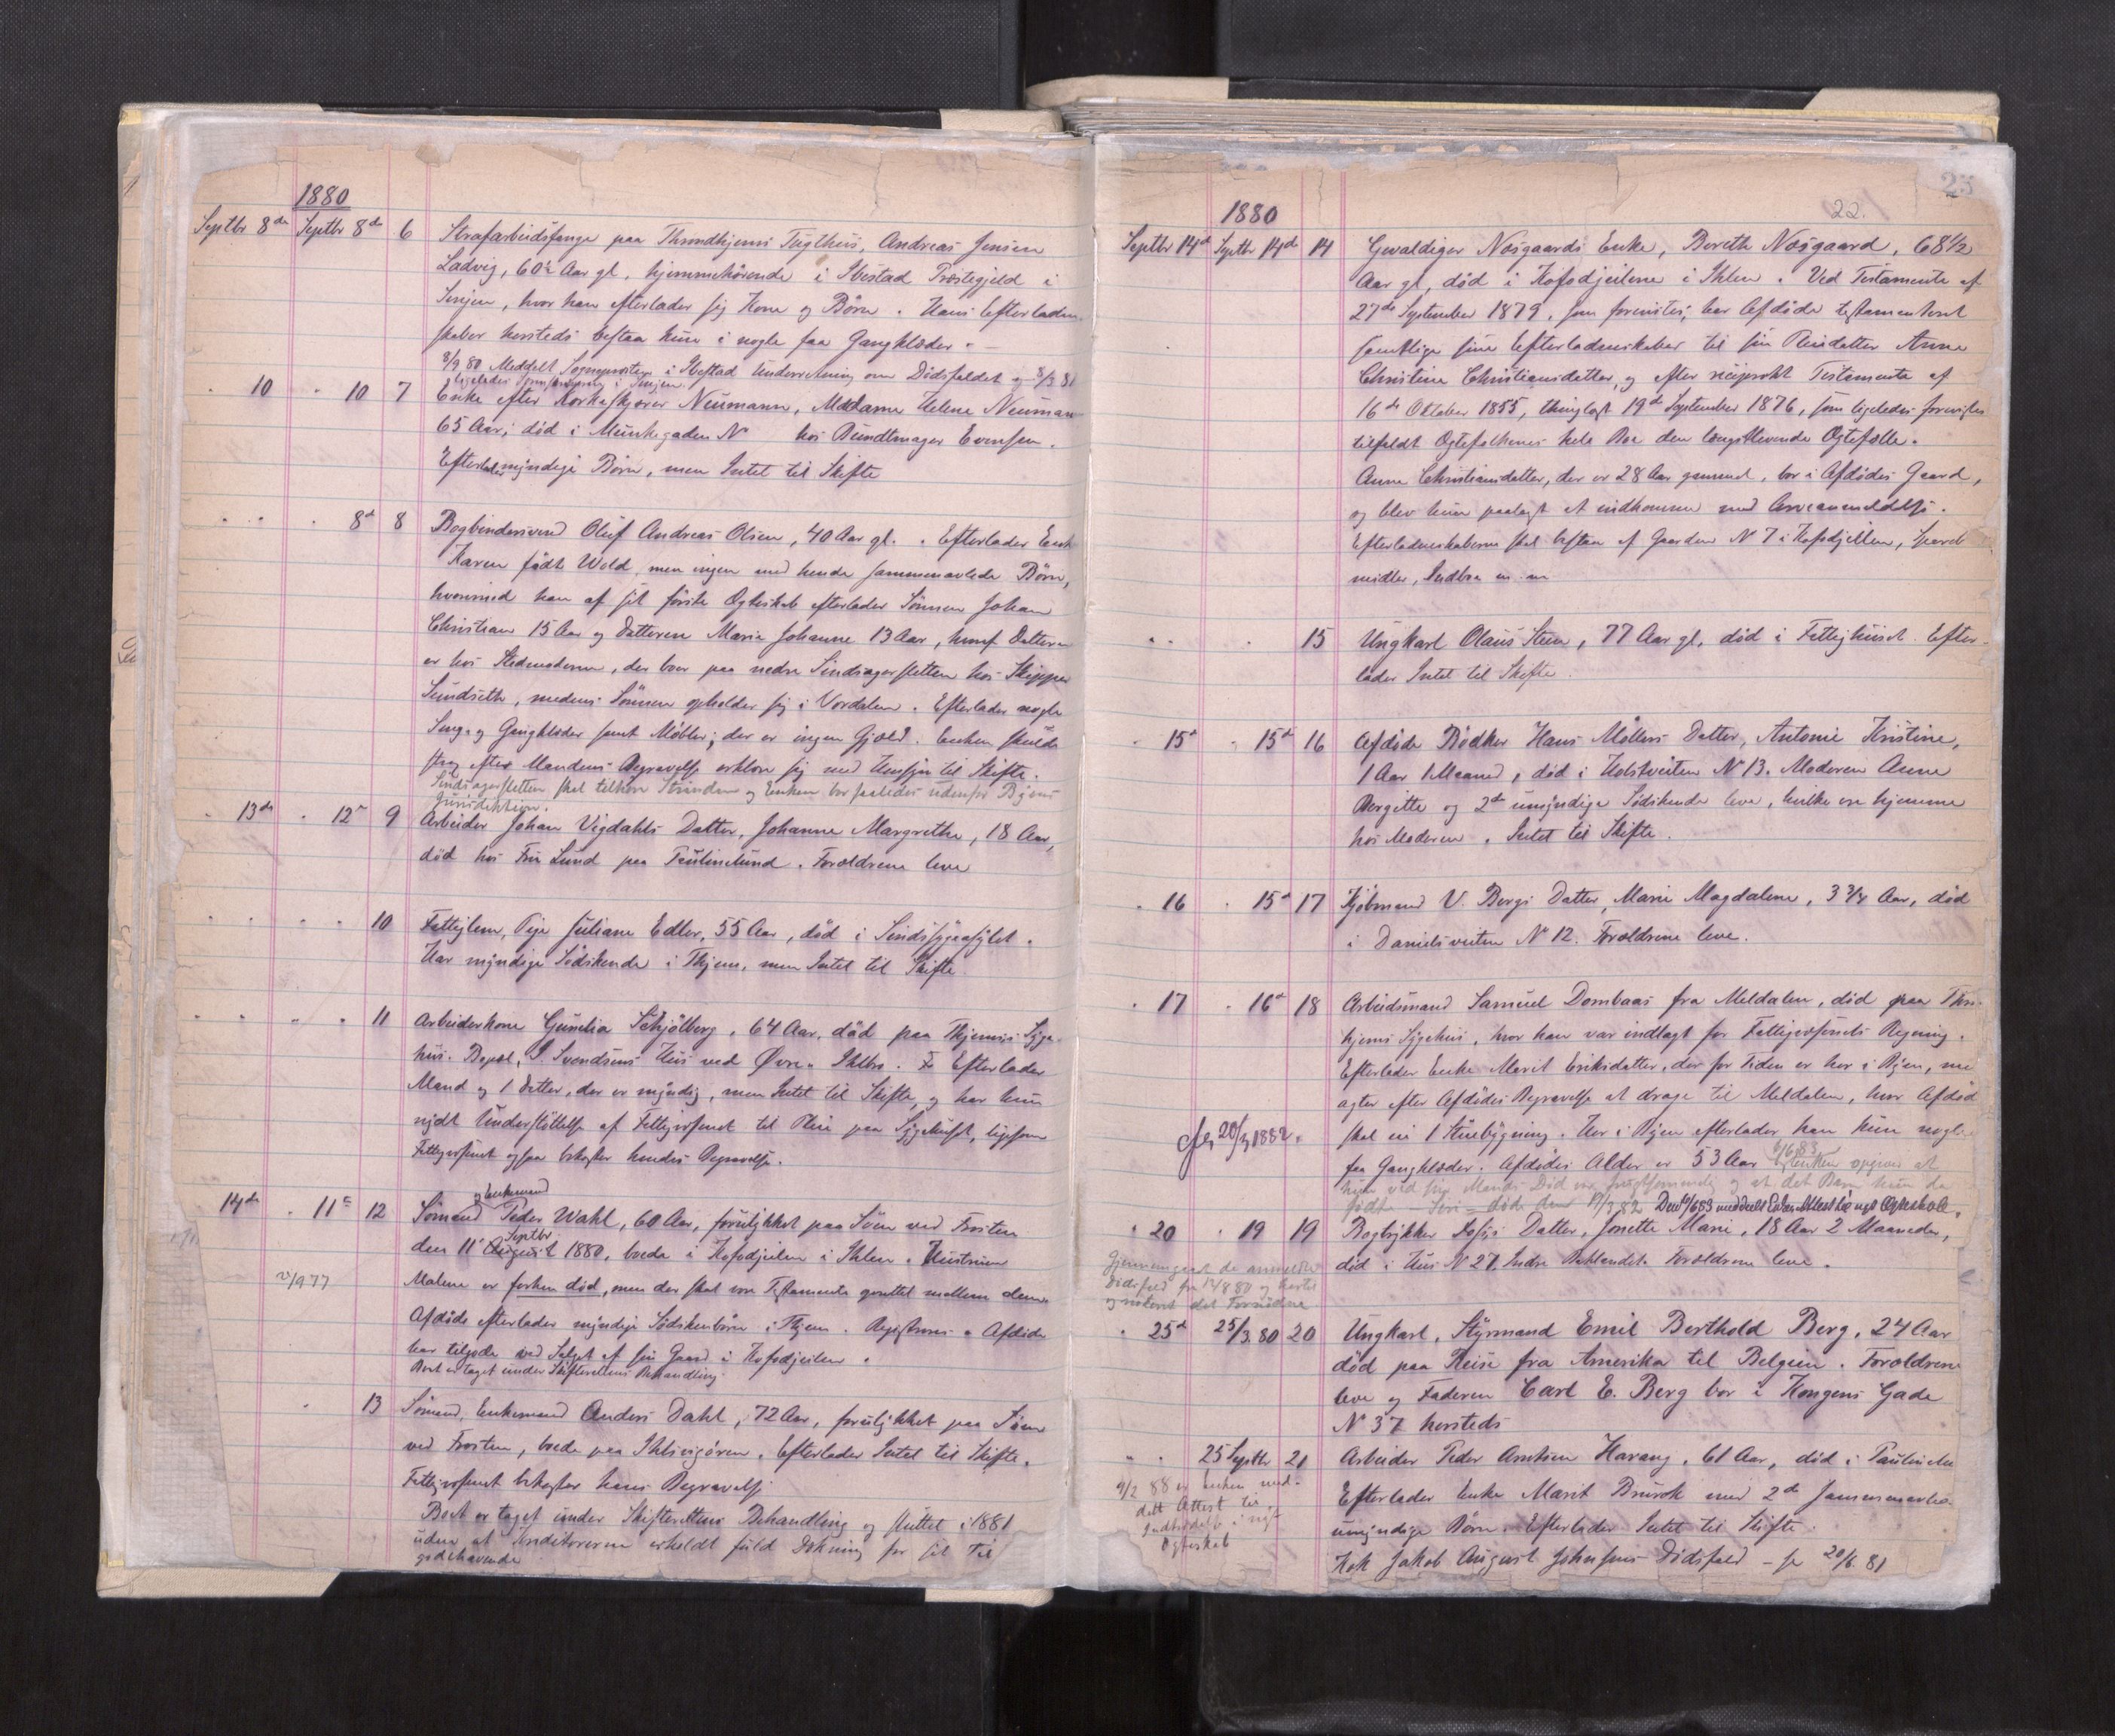 1880
Septbr 8de Septbr 8de 6 Strafarbeidsfange paa Throndhjems Tugthus, Andreas Jensen
Ladvig, 60½ Aar gl, hjemmehörende i Ibestad Præstegjeld i
Senjen, hvor han efterlader sig Kone og Börn. Hans Efterladen-
skaber hersteds bestaa kun i nogle faa Gangklæder. –
8/9 80 Meddelt Sognepresten i Ibestad Underretning om Dödsfaldet og 8/3 81
ligeledes i Senjen.
" 10 " 10 7 Enke efter Neumann, Madame Helene Neumann
65 Aar, död i Munkegaden No hos Bundtmager Evensen.
Efterlader myndige Börn, men Intet til Skifte
" " " 8d 8 Bogbindersvend Oluf Andreas Olsen, 40 Aar gl. . Efterlader Enke
Karen födt Wold, men ingen med hende sammenavlede Börn,
hvorimod han af sit förste Ægteskab efterlader Sönnen Johan
Christian 15 Aar og Datteren Marie Johanne 13 Aar, hvoraf Datteren
er hos Stedmoderen, der boer paa nedre Sindsagersletten hos Skipper
Sundseth, medens Sönnen opholder sig i Værdalen. Efterlader nogle
Seng- og Gangklæder samt Möbler; der er ingen Gjæld. Enken skulde
strax efter Mandens Begravelse erklære sig med Hensyn til Skifte.
Sindsagersletten skal tilhöre Strinden og Enken bor saaledes udenfor Byens
Jurisdiktion.
" 13de " 12te 9 Arbeider Johan Vigdahls Datter, Johanne Margrethe, 18 Aar,
död hos Fru Lund paa Paulinelund. Forældrene leve
" " " " 10 Fattiglem, Pige Juliane Edler, 55 Aar, död i Sindssygeasylet.
Har myndige Södskende i Thjem, men Intet til Skifte
" " " " 11 Arbeiderkone Gunelia Schjölberg, 64 Aar, död paa Thjems Syge-
hus. Bopæl, I. Svendsens Hus ved Øvre Ihlen. Efterlader
Mand og 1 Datter, der er myndig, men Intet til Skifte, og har hun
nydt Understöttelse af Fattigvæsenet til Pleie paa Sygehuset, ligesom
Fattigvæsenet ogsaa bekoster hendes Begravelse.
og Enkemand
14de " 11te 12 Sömand Peder Wahl, 60 Aar, forulykket paa Söen ved Frosten
Septbr
den 11' August 1880, boede i Kofodgeilen i Ihlen. Hustruen
2/9 77 Malene er forhen död, men der skal være Testamente oprettet mellem dem.
Afdöde efterlader myndige Södskendebörn i Thjem. Registreres. Afdöde
har tilgode ved Salget af sin Gaard i Kofodgeilen.
Boet er taget under Skifterettens Behandling.
" 13 Sömand, Enkemand Anders Dahl, 72 Aar, forulykket paa Söen
ved Frosten, boede paa Ihlsvigören. Efterlader Intet til Skifte.
Fattigvæsenet bekoster hans Begravelse.
Boet er taget under Skifterettens Behandling og sluttet i 1881
uden at Kreditorerne erholdt fuld Dækning for sit Til-
godehavende
25
22.
1880
Septbr 14d Septbr 14de 14 Gevaldiger Næsgaards Enke, Bereth Næsgaard, 68½
Aar gl, död i Kofodgeilene i Ihlen. Ved Testamente af
27de September 1879, som forevistes, har Afdöde testamenteret
samtlige sine Efterladenskaber til sin Pleiedatter Anne
Christine Christiansdatter, og efter reciprokt Testamente af
16de Oktober 1855, thinglæst 19de September 1876, som ligeledes forevistes
tilfaldt Ægtefolkenes hele Boe den længstlevende Ægtefælle.
Anne Christiansdatter, der er 28 Aar gammel, bor i Afdödes Gaard,
og blev hun paalagt at indkomme med Arveanmeldelse.
Efterladenskaberne skal bestaa af Gaarden N 7 i Kofodgeilen, Spare-
midler, Indbo m. m.
" " " 15 Ungkarl Olaus Steen, 77 Aar gl, död i Fattighuset. Efter-
lader Intet til Skifte.
" 15d " 15d 16 Afdöde Bödker Hans Möllers Datter, Antonie Kristine,
1 Aar 1 Maaned, död i Holstveiten No 13. Moderen Anne
Bergitte og 2de umyndige Södskende leve, hvilke ere hjemme
hos Moderen. Intet til Skifte.
" 16 " 15d 17 Kjöbmand V. Bergs Datter, Marie Magdalene, 3 3/4 Aar, död
i Danielsveiten No 12. Forældrene leve.
" 17 " 16d 18 Arbeidsmand Samuel Dombaas fra Meldalen, död paa Thr-
hjems Sygehus, hvor han var indlagt for Fattigvæsenets Regning.
Efterlader Enke Marit Eriksdatter, der for Tiden er her i Byen, men
agter efter Afdödes Begravelse at drage til Meldalen, hvor Afdöde
cfr 20/3 1882. skal eie 1 Stuebygning. Her i Byen efterlader han kun nogle
faa Gangklæder. Afdödes Alder er 53 Aar 9/6 83 Enken opgiver at
hun ved sin Mands Död var frugtsommelig og at det Barn hun da
födte döde den 17/3 82 Den 9/6 83 meddelt Enken Attest til nyt Ægteskab.
" 20 " 19 19 Bogtrykker Datter, Josette Marie, 18 Aar 2 Maaneder,
död i Hus No 27, Indre Baklandet. Forældrene leve.
Gjennemgaaet de anmeldte
Dödsfald fra 12/8 80 og hertil
og noteret det Fornödne
" 25d 25/3.80 20 Ungkarl, Styrmand Emil Berthold Berg, 24 Aar
död paa Reise fra Amerika til Belgien. Forældrene
leve og Faderen Carl E. Berg bor i Kongens Gade
No 37 hersteds
" " 25 Septbr 21 Arbeider Peder Arntsen Havang, 61 Aar, död i Paulinelu
9/2 88 er Enken med-
delt Attest til
Indtrædelse i nyt
Ægteskab
Efterlader Enke Marit Brurok med 2de sammenavlede
umyndige Börn. Efterlader Intet til Skifte.
Kok Jakob August Johnsens Dödsfald – se 20/6. 81